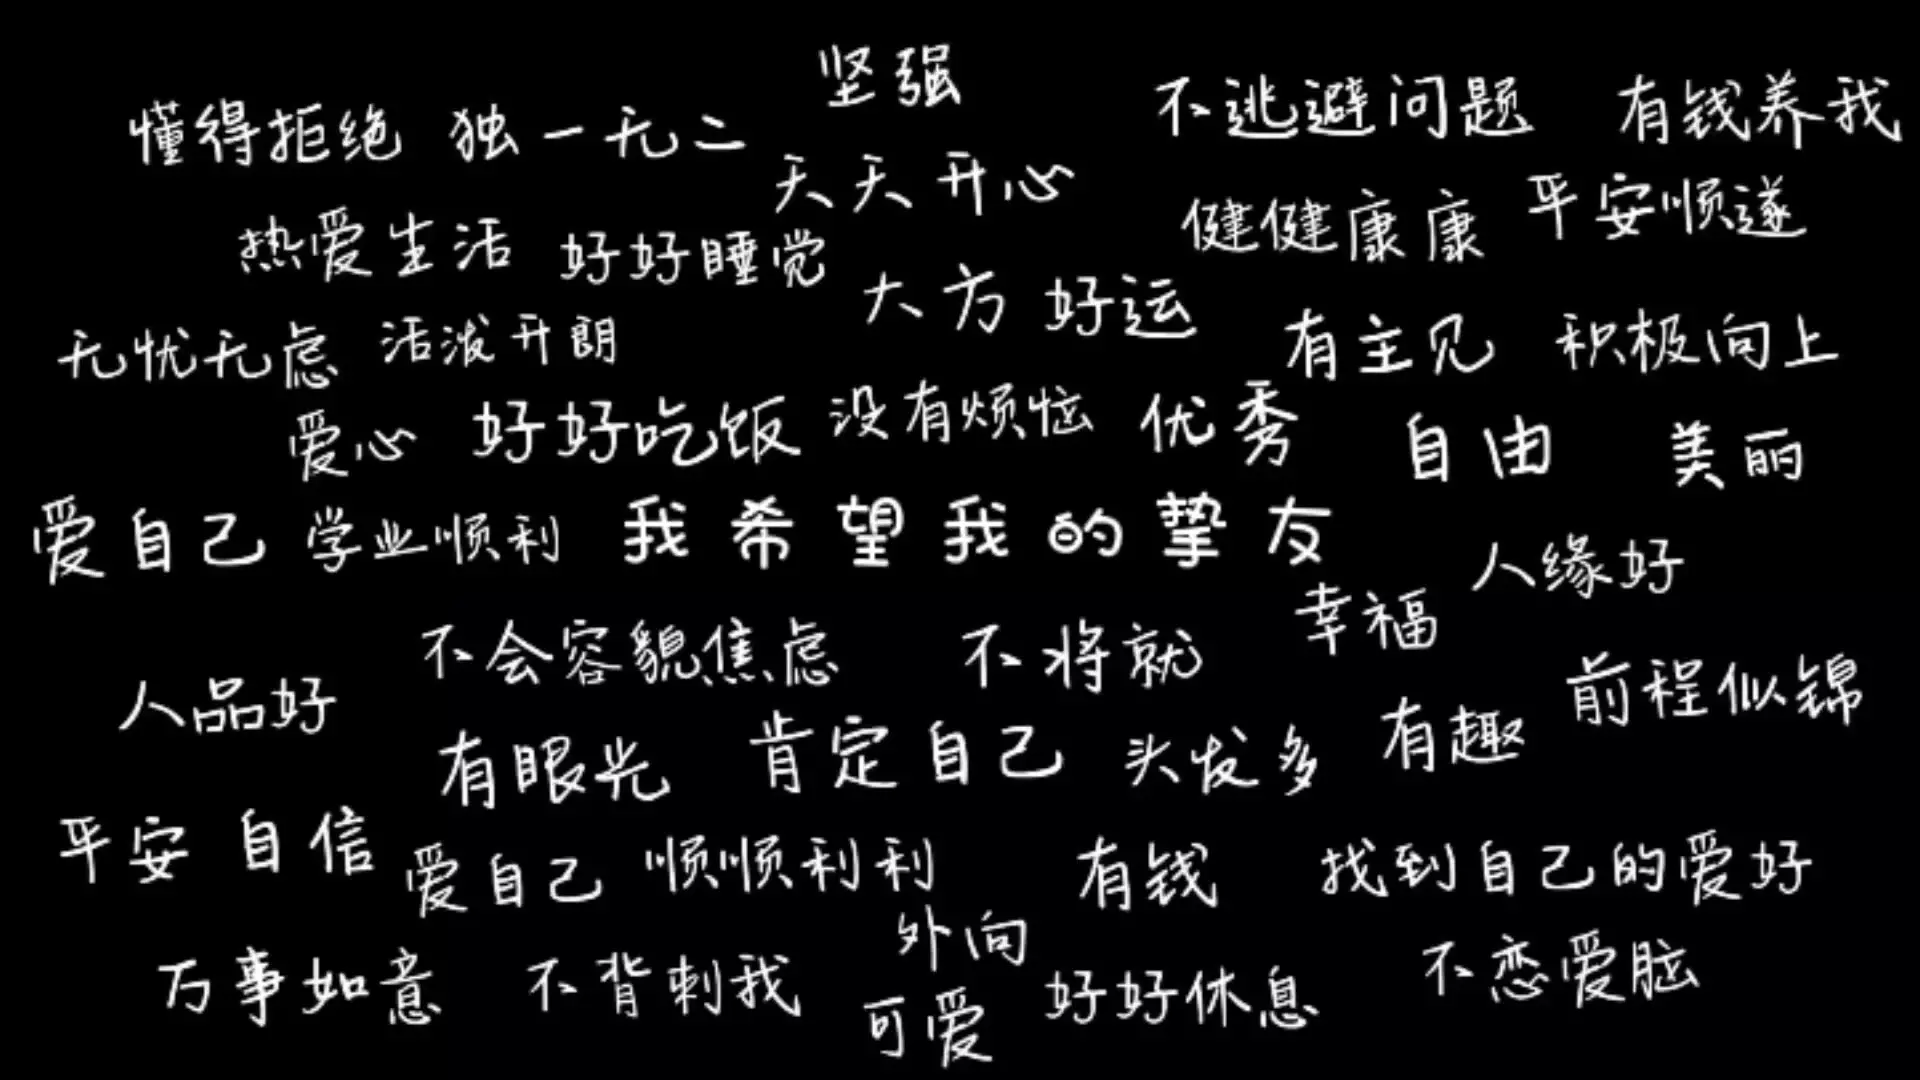 坚强
懂得拒绝 独一无二
不逃避问题 有钱养我
天天开心
热爱生活 好好睡觉
健健康康 平安顺遂
大方 好运
无忧无虑 活泼开朗
有主见 积极向上
爱心 好好吃饭 没有烦恼 优秀
自由 美丽
爱自己 学业顺利 我希望我的挚友
人缘好
幸福
不会容貌焦虑 不将就
人品好
前程似锦
有眼光 肯定自己 头发多 有趣
平安 自信
爱自己 顺顺利利 有钱 找到自己的爱好
外向
万事如意 不背刺我
可爱 好好休息 不恋爱脑